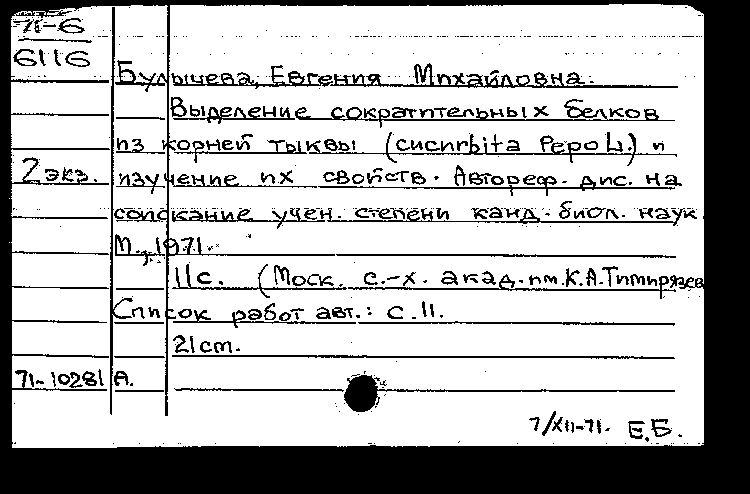 71-6
6116
Булычева, Евгения Михайловна.
Выделение сократительных белков
из корней тыквы (cucurbita Pepo L.) и
2 экз. изучение их свойств. Автореф. дис. на
соискание учен. степени канд. биол. наук.
М., 1971.
11с. (Моск. с.-х. акад. им. К.А. Тимирязев
Список работ авт.: с. 11.
21cm.
71-10281 А.
7/XII-71. Е.Б.